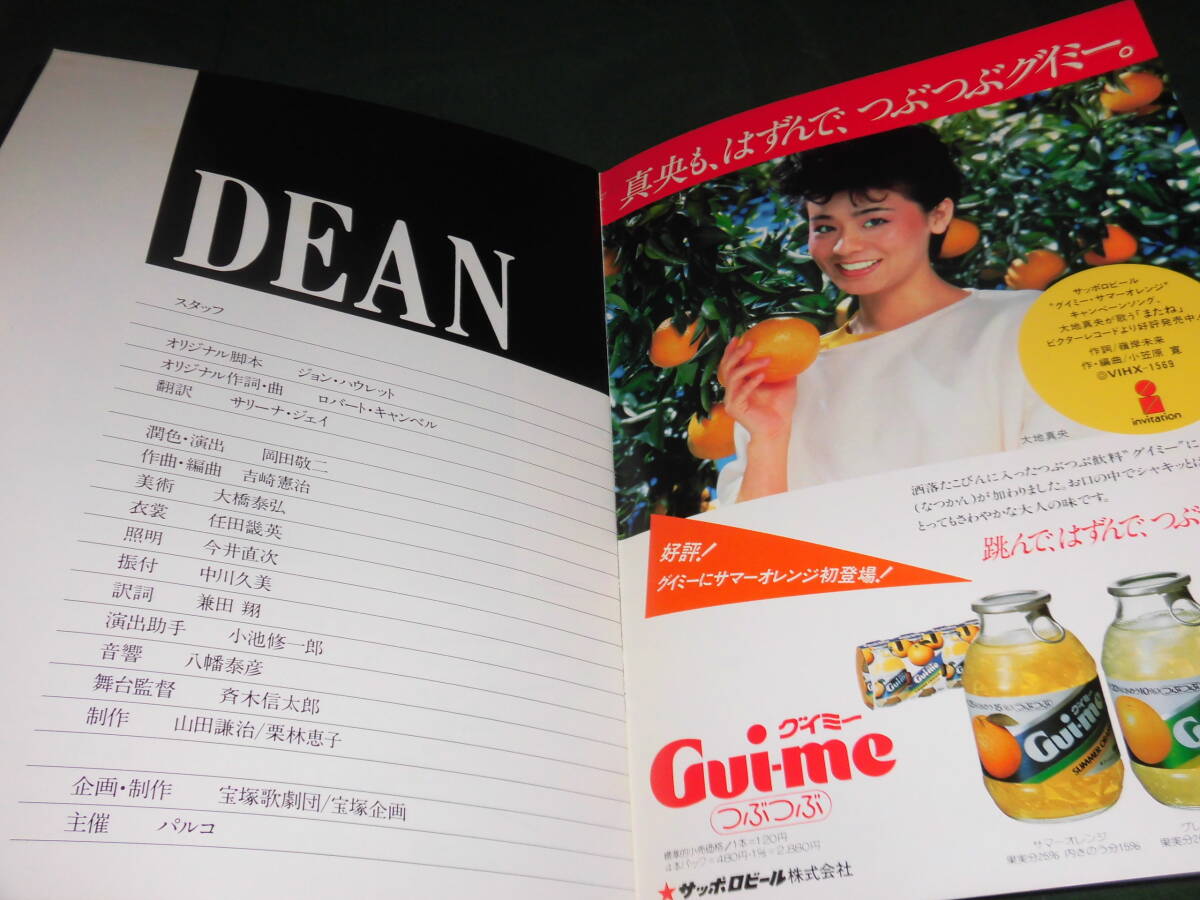 DEAN
スタッフ
オリジナル脚本 ジョン・ハウレット
オリジナル作詞・曲 ロバート・キャンベル
翻訳 サリーナ・ジェイ
潤色・演出 岡田敬二
作曲・編曲 吉崎憲治
美術 大橋泰弘
衣裳 任田幾英
照明 今井直次
振付 中川久美
訳詞 兼田 翔
演出助手 小池修一郎
音響 八幡泰彦
舞台監督 斉木信太郎
制作 山田謙治/栗林恵子
企画・制作 宝塚歌劇団/宝塚企画
主催 パルコ
真央も、はずんで、つぶつぶグイミー。
サッポロビール
"グイミー・サマーオレンジ"
キャンペーンソング。
大地真央が歌う「またね」
ビクターレコードより好評発売中
作詞/嶺岸未来
作・編曲/小笠原 寛
©VIHX-1569
invitation
大地真央
洒落たこびんに入ったつぶつぶ飲料"グイミー"に
(なつかん)が加わりました。お口の中でシャキッとは
とってもさわやかな大人の味です。
跳んで、はずんで、つぶ
好評!
グイミーにサマーオレンジ初登場!
グイミー
Gui-me
つぶつぶ
標準的小売価格/1本=120円
4本パック=480円・1ケース=2,880円
★サッポロビール株式会社
グイミー
Gui-me
SUMMER ORANGE
サマーオレンジ
果実分25% 内さのう分15%
グレ
果実分2